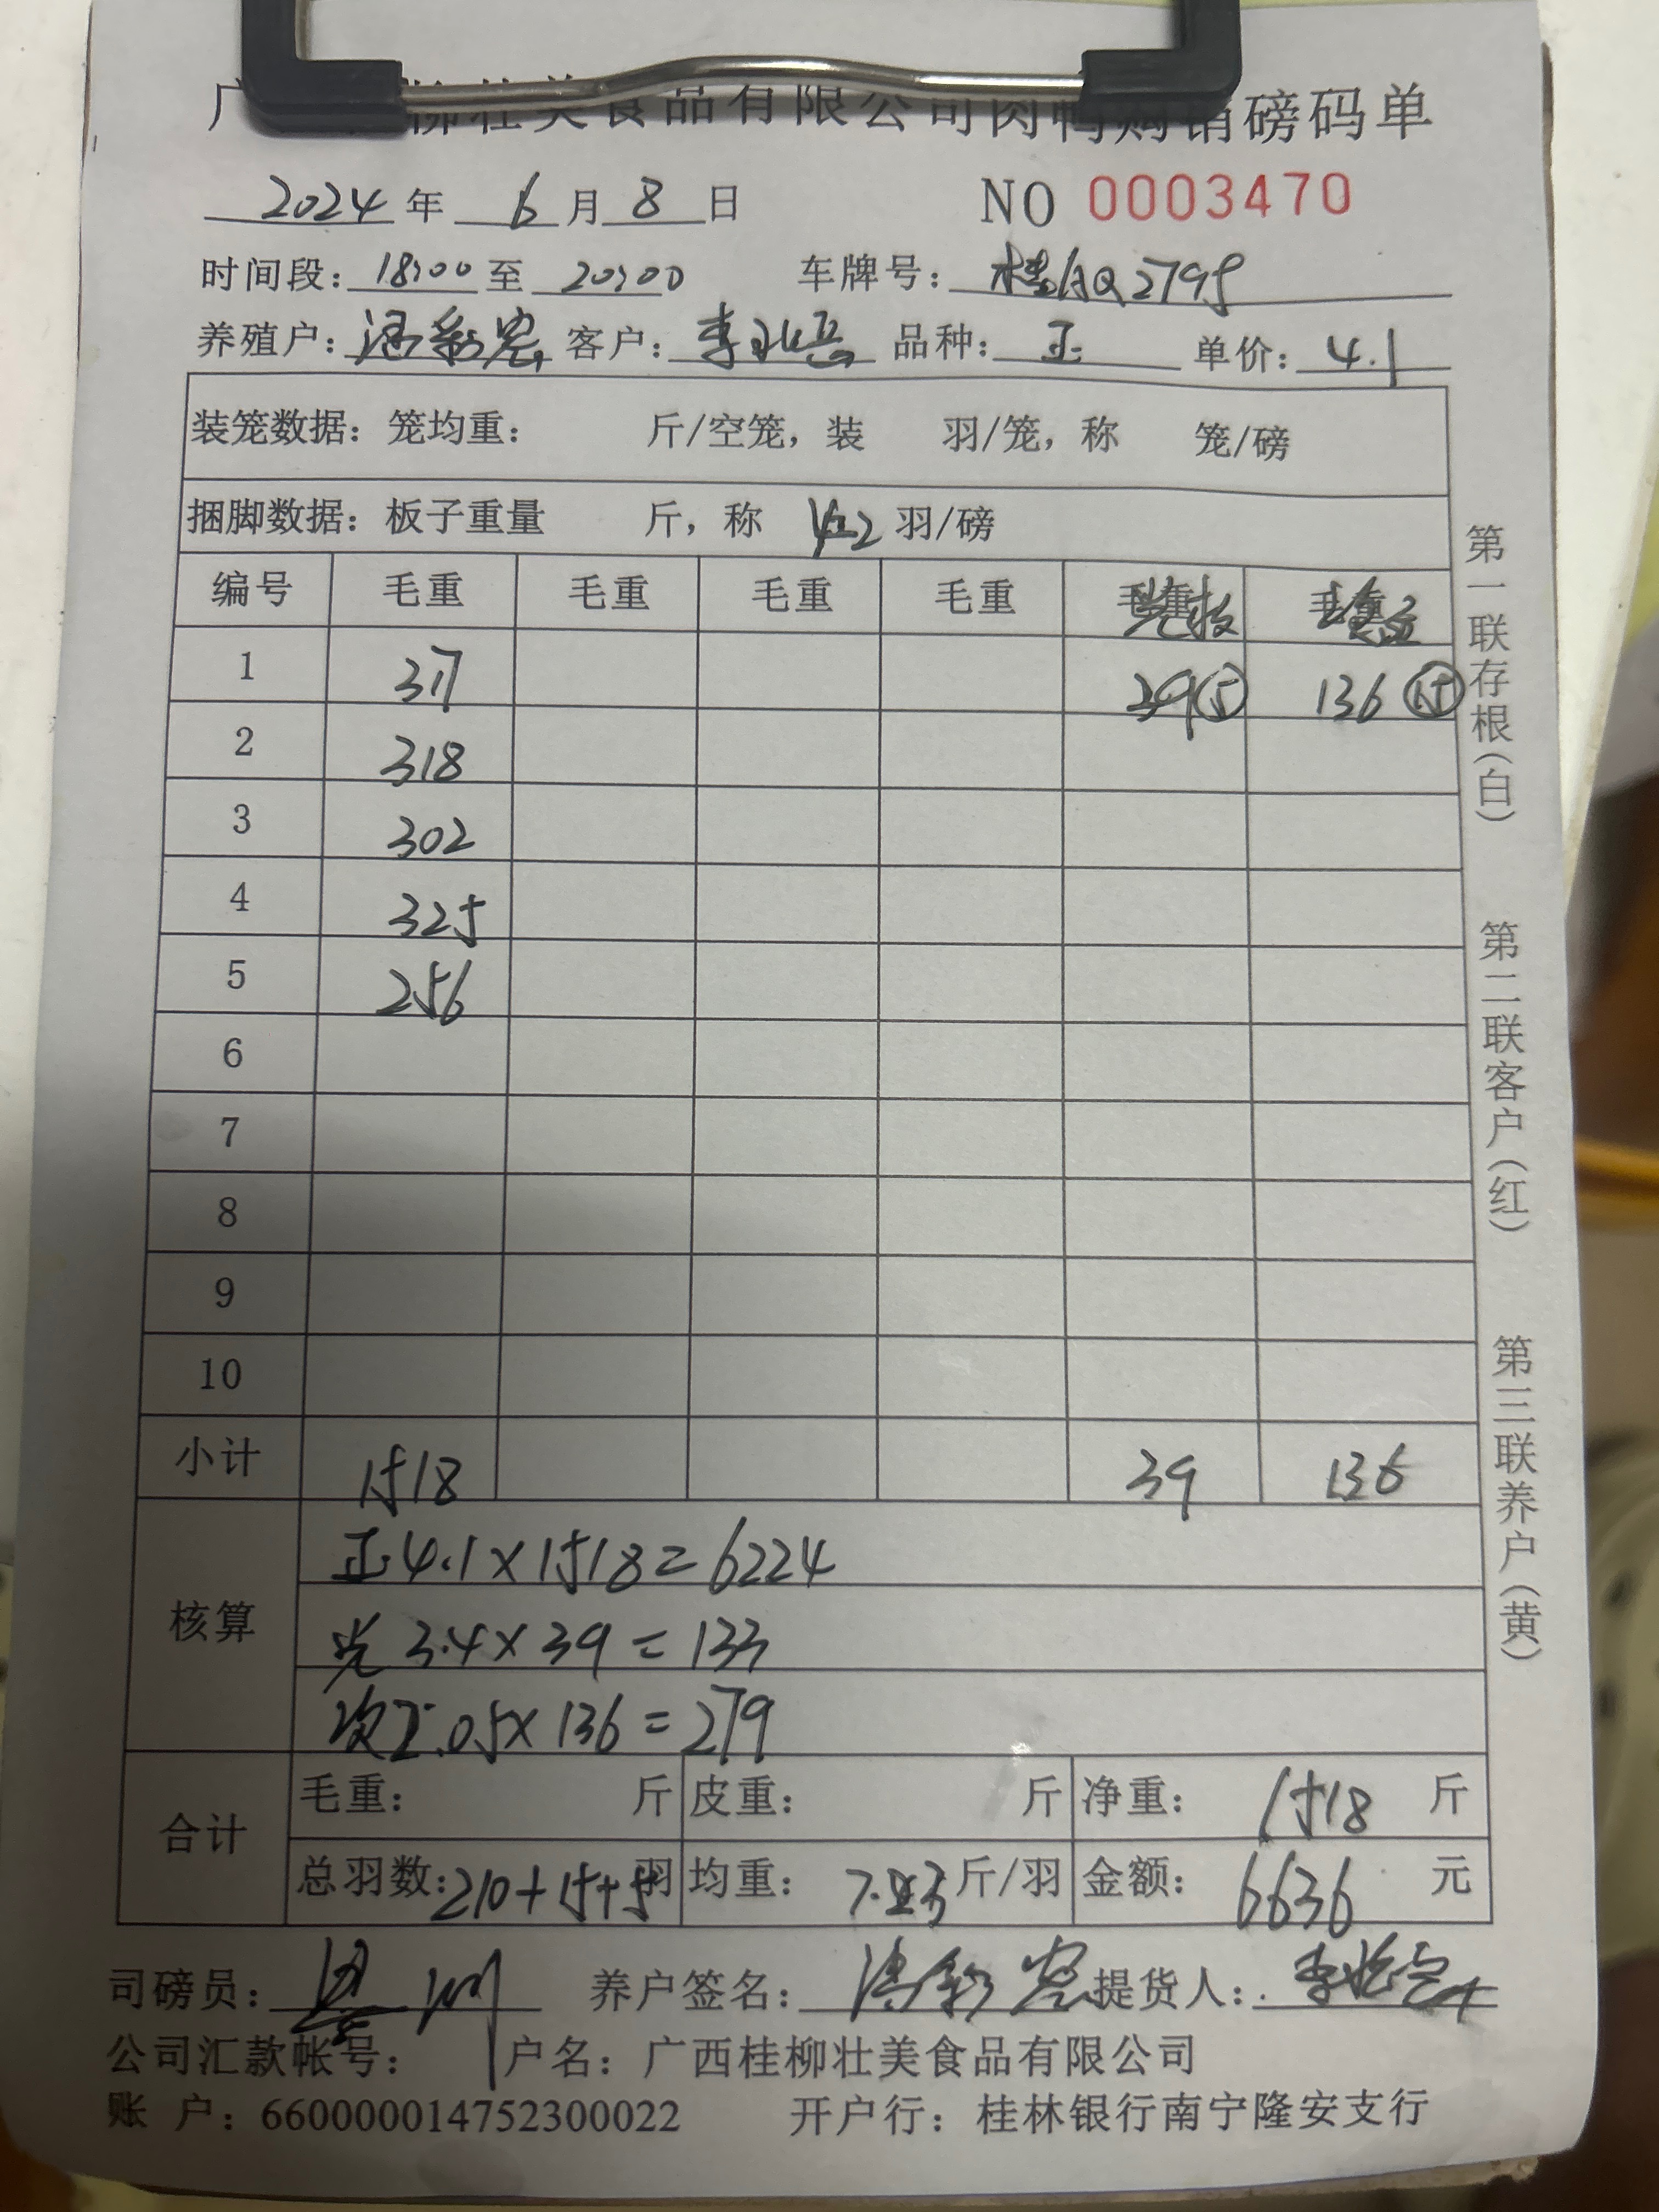 柳壮美食品有限公司肉鸭购销磅码单
2024 年 6 月 8 日 NO 0003470
时间段: 18:00 至 20:00 车牌号: 桂AQ2795
养殖户: 客户: 李 品种: 正 单价: 4.1
装笼数据: 笼均重: 斤/空笼, 装 羽/笼, 称 笼/磅
捆脚数据: 板子重量 斤, 称 42 羽/磅
编号 毛重 毛重 毛重 毛重 毛重 毛重
1 317 39 ⑤ 136 ⑮
2 318
3 302
4 325
5 256
6
7
8
9
10
小计 1518 39 136
核算 正 4.1×1518=6224
光 3.4×39=133
次 2.05×136=279
合计 毛重: 斤 皮重: 斤 净重: 1518 斤
总羽数: 210+15+5 羽 均重: 7.23 斤/羽 金额: 6636 元
司磅员: 养户签名: 提货人: 李
公司汇款帐号: 户名: 广西桂柳壮美食品有限公司
账 户: 660000014752300022 开户行: 桂林银行南宁隆安支行
第一联存根(白) 第二联客户(红) 第三联养户(黄)